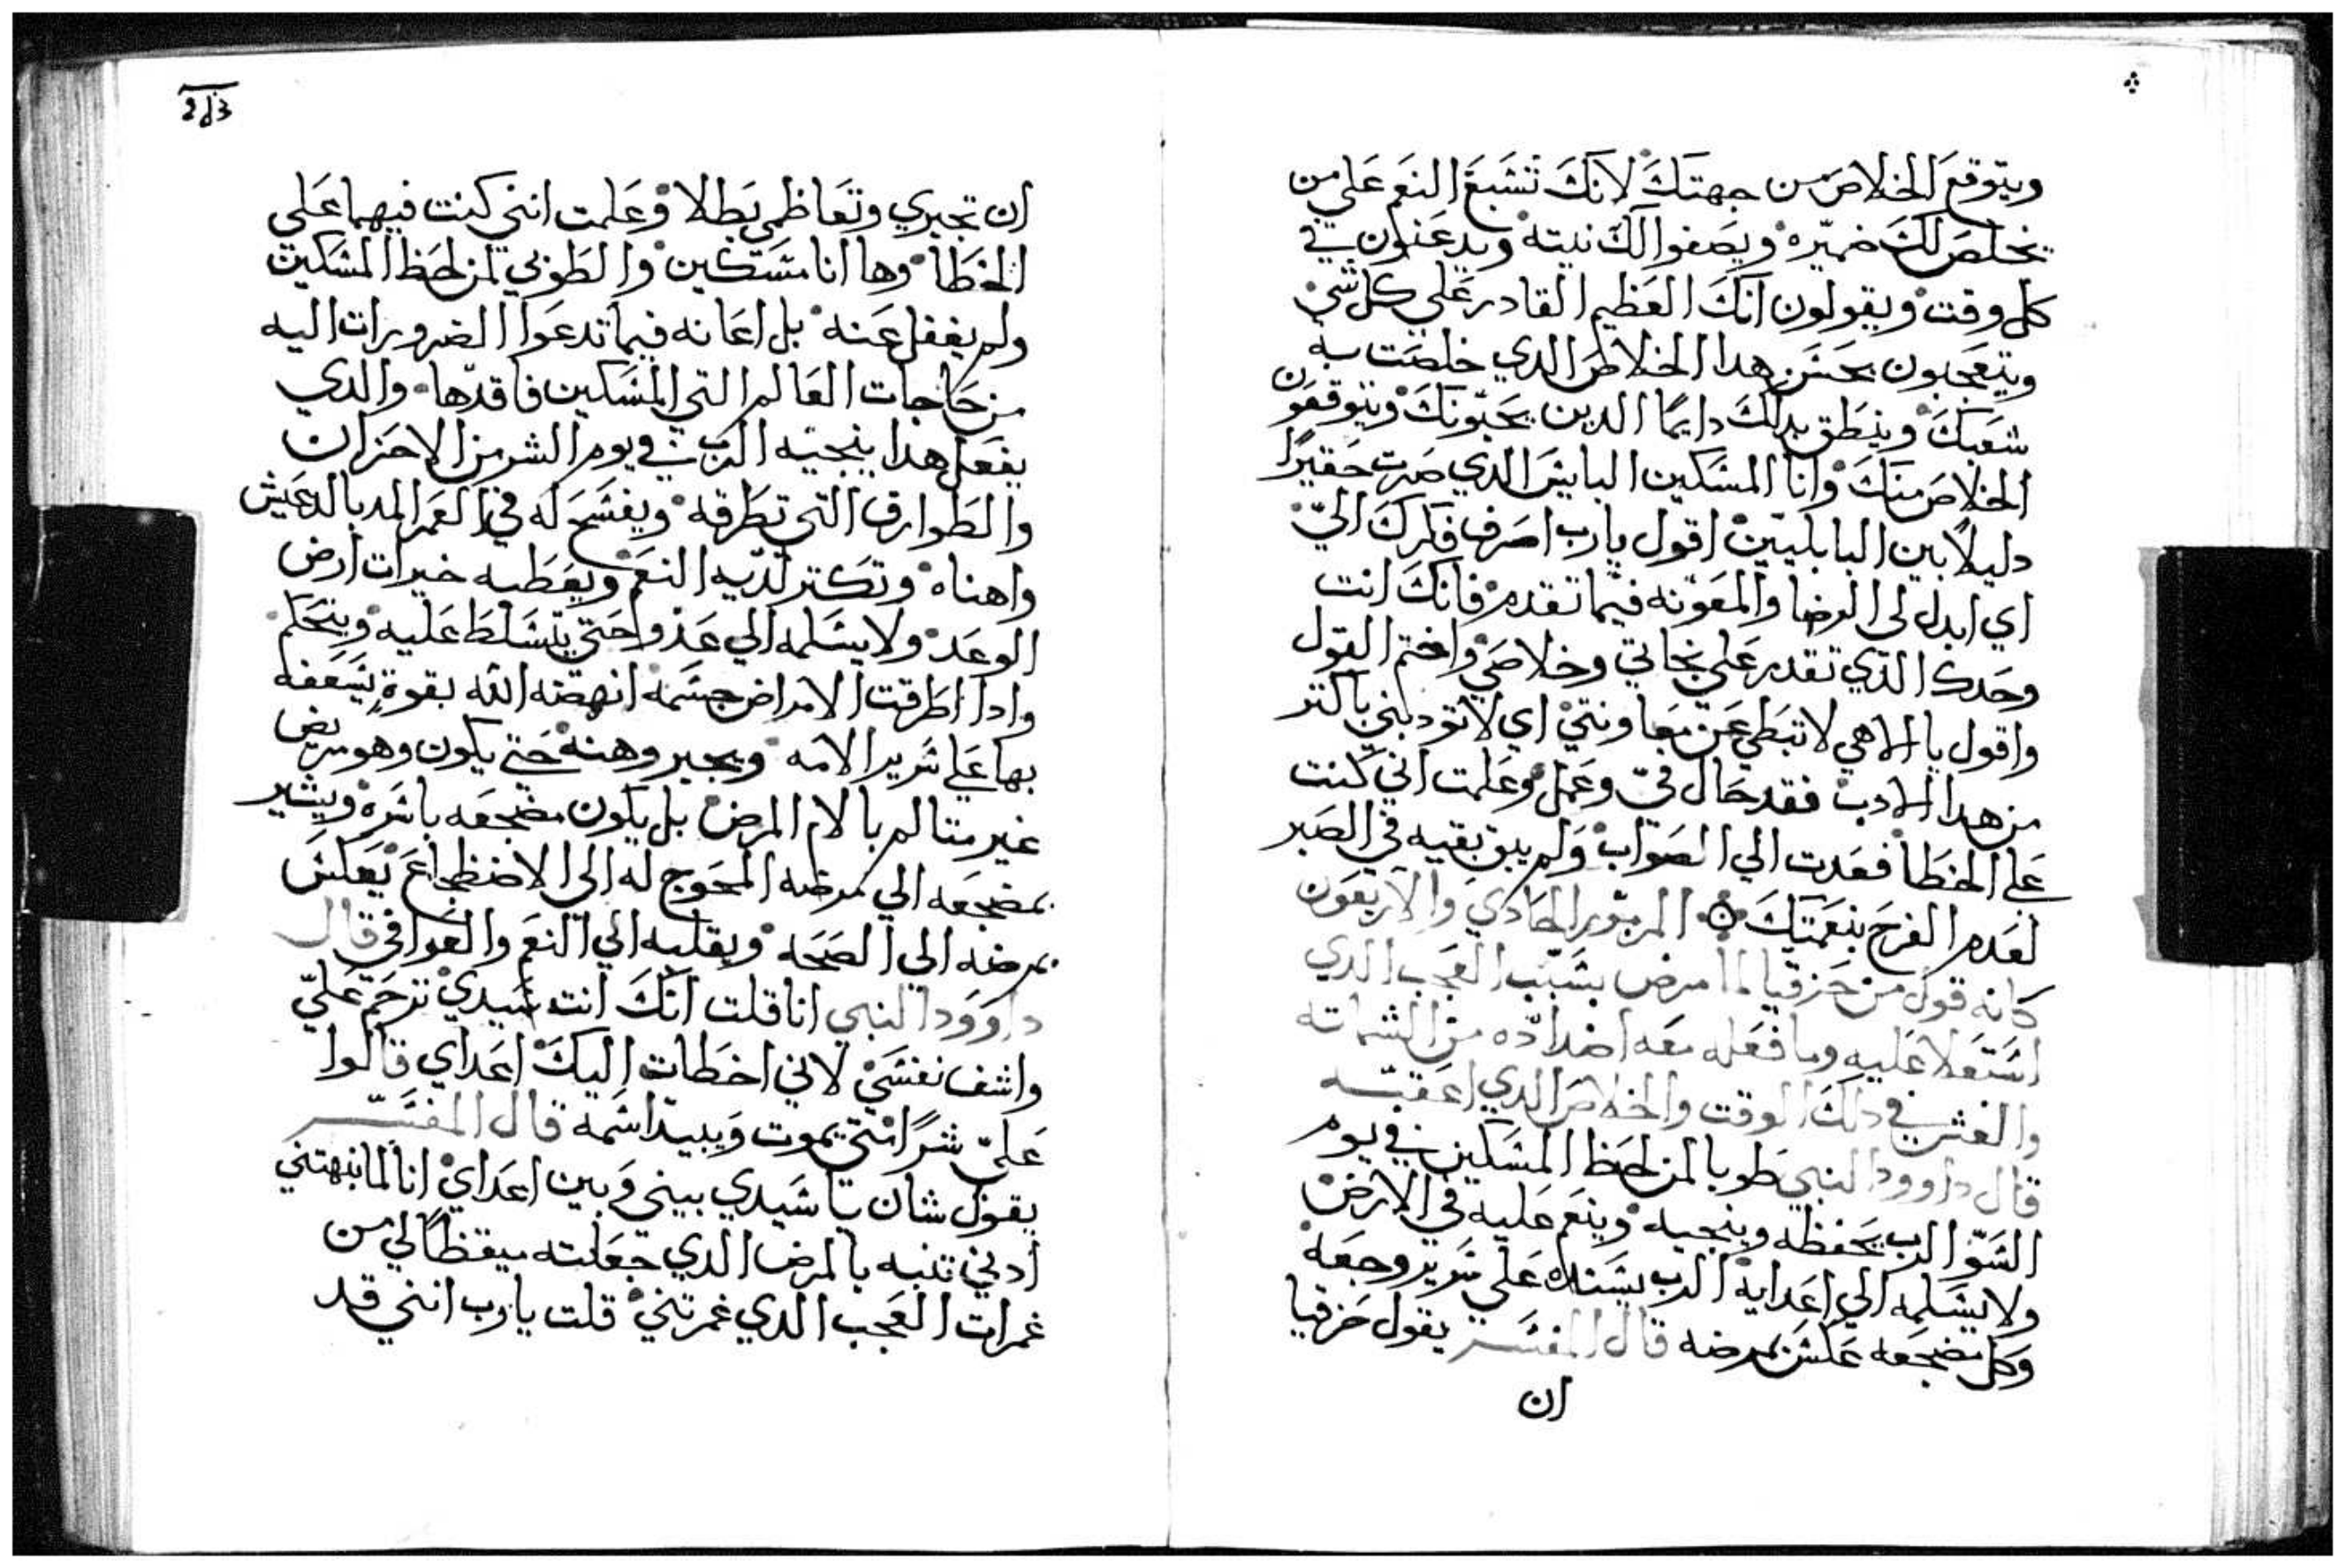 ويتوقع الخلاص من جهتك لانك تشبع النعم علي من
يخلص لك ضميره ويصفوا لك نيته ويدعنون في
كل وقت ويقولون انك العظيم القادر علي كل شي
ويتعجبون بحسن هدا الخلاص الدي خلصت به
شعبك وينطق بدلك دايما الدين يحبونك ويتوقعون
الخلاص منك وانا المسكين البايس الدي صرت حقيرا
دليلا بين البابليين اقول يارب اصرف فكرك الي
اي ابدل لي الرضا والمعونه فيما تقدم فانك انت
وحدك الدي تقدر علي نجاتي وخلاصي واختم القول
واقول يا الاهي لا تبطي عن معاونتي اي لا تودبني باكتر
من هدا الادب فقد حال في وعمل وعلمت اني كنت
علي الخطا فعدت الي الصواب ولم يبق بقيه في الصبر
لعدم الفرح بنعمتك المزمور الحادي والاربعون
كانه قول من حزقيا لما مرض بسبب العجب الدي
استعلا عليه وما فعله معه اضداده من الشماته
والغش في دلك الوقت والخلاص الدي اعقبه
قال داوود النبي طوبا لمن لحظ المسكين في يوم
السو الرب يحفظه وينجيه وينعم عليه في الارض
ولا يسلمه الي اعدايه الرب يسنده علي سرير وجعه
وكل مضجعه عكس بمرضه قال المفسر يقول حزقيا
ان
ان تجبري وتعاظمي بطلا وعلمت انني كنت فيهما علي
الخطا وها انا مسكين والطوبي لمن لحظ المسكين
ولم يغفل عنه بل اعانه فيما تدعوا الضرورات اليه
من حاجات العالم التي المسكين فاقدها والدي
يفعل هدا ينجيه الرب في يوم الشر من الاحزان
والطوارق التي تطرقه ويفسح له في العمر المد بالدعيش
واهناه وتكتر لديه النعم ويعطيه خيرات ارض
الوعد ولا يسلمه الي عدوا حتي يتسلط عليه ويتحكم
وادا اطرقت الامراض جسمه انهضه الله بقوة يسعفه
بها علي سرير الامه ويجبر وهنه حتي يكون وهو مريض
غير متالم بالام المرض بل يكون مضجعه باسره ويشير
بمضجعه الي مرضه المحوج له الي الاضطجاع يعكس
بمرضه الي الصحه ويقلبه الي النعم والعوافي قال
داوود النبي انا قلت انك انت سيدي ترحم علي
واشف نفسي لاني اخطات اليك اعداي قالوا
علي شرا متي يموت ويبيد اسمه قال المفسر
يقول شان يا سيدي بيني وبين اعداي انا لما نبهتني
ادني تنبه بالمرض الدي جعلته ميقظا لي من
غمرات العجب الدي غمرتني قلت يا رب انني قد